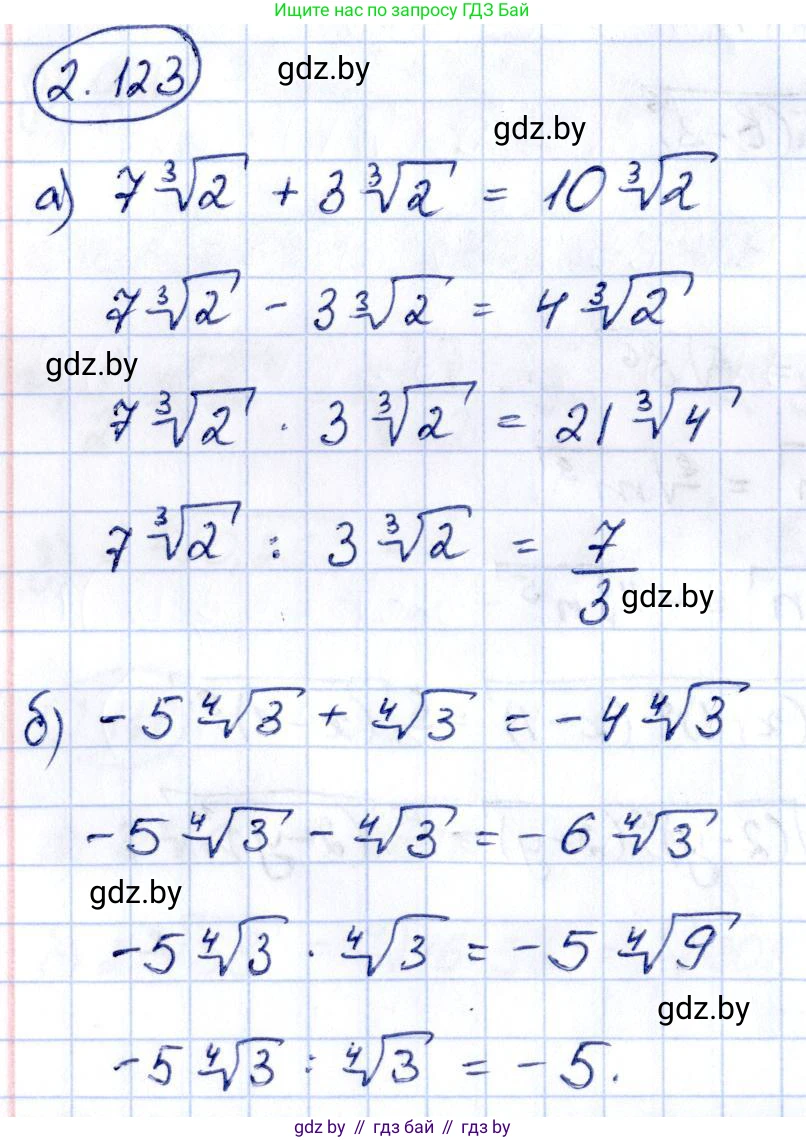 Ищите нас по запросу ГДЗ Бай
2.123
gdz.by
gdz.by
а) 7∛2 + 3∛2 = 10∛2
7∛2 - 3∛2 = 4∛2
gdz.by
7∛2 · 3∛2 = 21∛4
7∛2 : 3∛2 = 7/3
gdz.by
б) -5∜3 + ∜3 = -4∜3
-5∜3 - ∜3 = -6∜3
gdz.by
-5∜3 · ∜3 = -5∜9
gdz.by
-5∜3 : ∜3 = -5.
gdz.by // гдз бай // гдз by